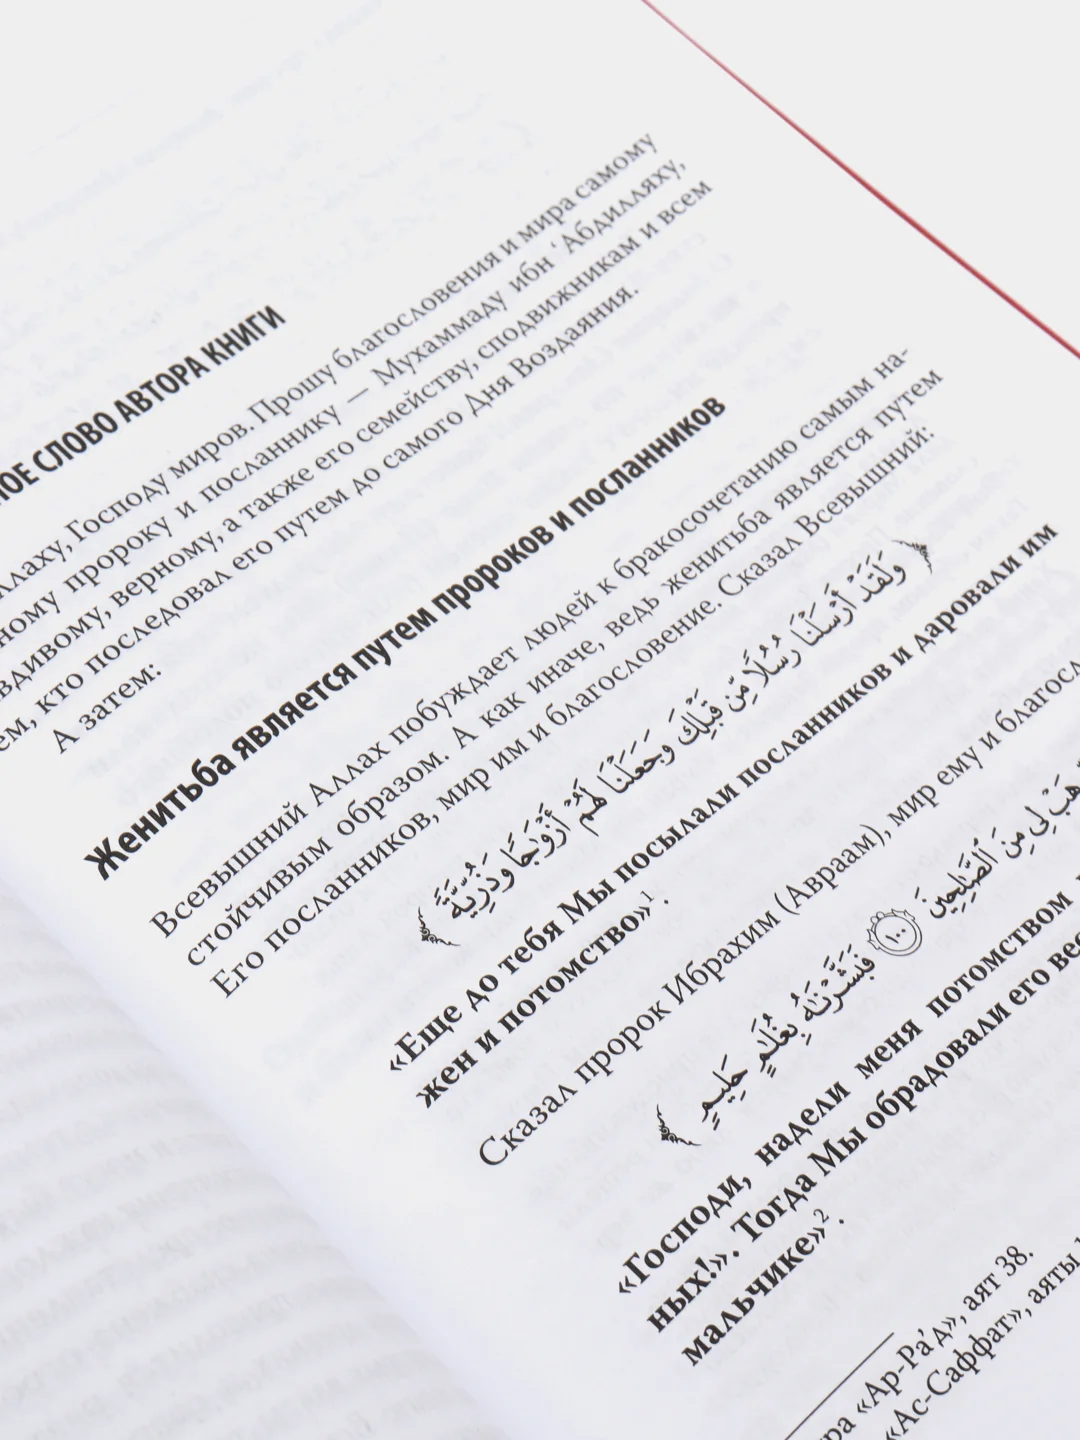 СЛОВО АВТОРА КНИГИ
Господу миров. Прошу благословения и мира самому
пророку и посланнику — Мухаммаду ибн ‘Абдилляху,
верному, а также его семейству, сподвижникам и всем
кто последовал его путем до самого Дня Воздаяния.
А затем:
Женитьба является путем пророков и посланников
Всевышний Аллах побуждает людей к бракосочетанию самым на-
стойчивым образом. А как иначе, ведь женитьба является путем
Его посланников, мир им и благословение. Сказал Всевышний:
﴿ وَلَقَدْ أَرْسَلْنَا رُسُلًا مِّن قَبْلِكَ وَجَعَلْنَا لَهُمْ أَزْوَٰجًا وَذُرِّيَّةً ﴾
«Еще до тебя Мы посылали посланников и даровали им
жен и потомство»¹.
Сказал пророк Ибрахим (Авраам), мир ему и
هَبْ لِى مِنَ ٱلصَّٰلِحِينَ ١٠٠ فَبَشَّرْنَٰهُ بِغُلَٰمٍ حَلِيمٍ ﴾
«Господи, надели меня потомством
ных!». Тогда Мы обрадовали его
мальчике»².
«Ар-Ра’д», аят 38.
«Ас-Саффат», аяты